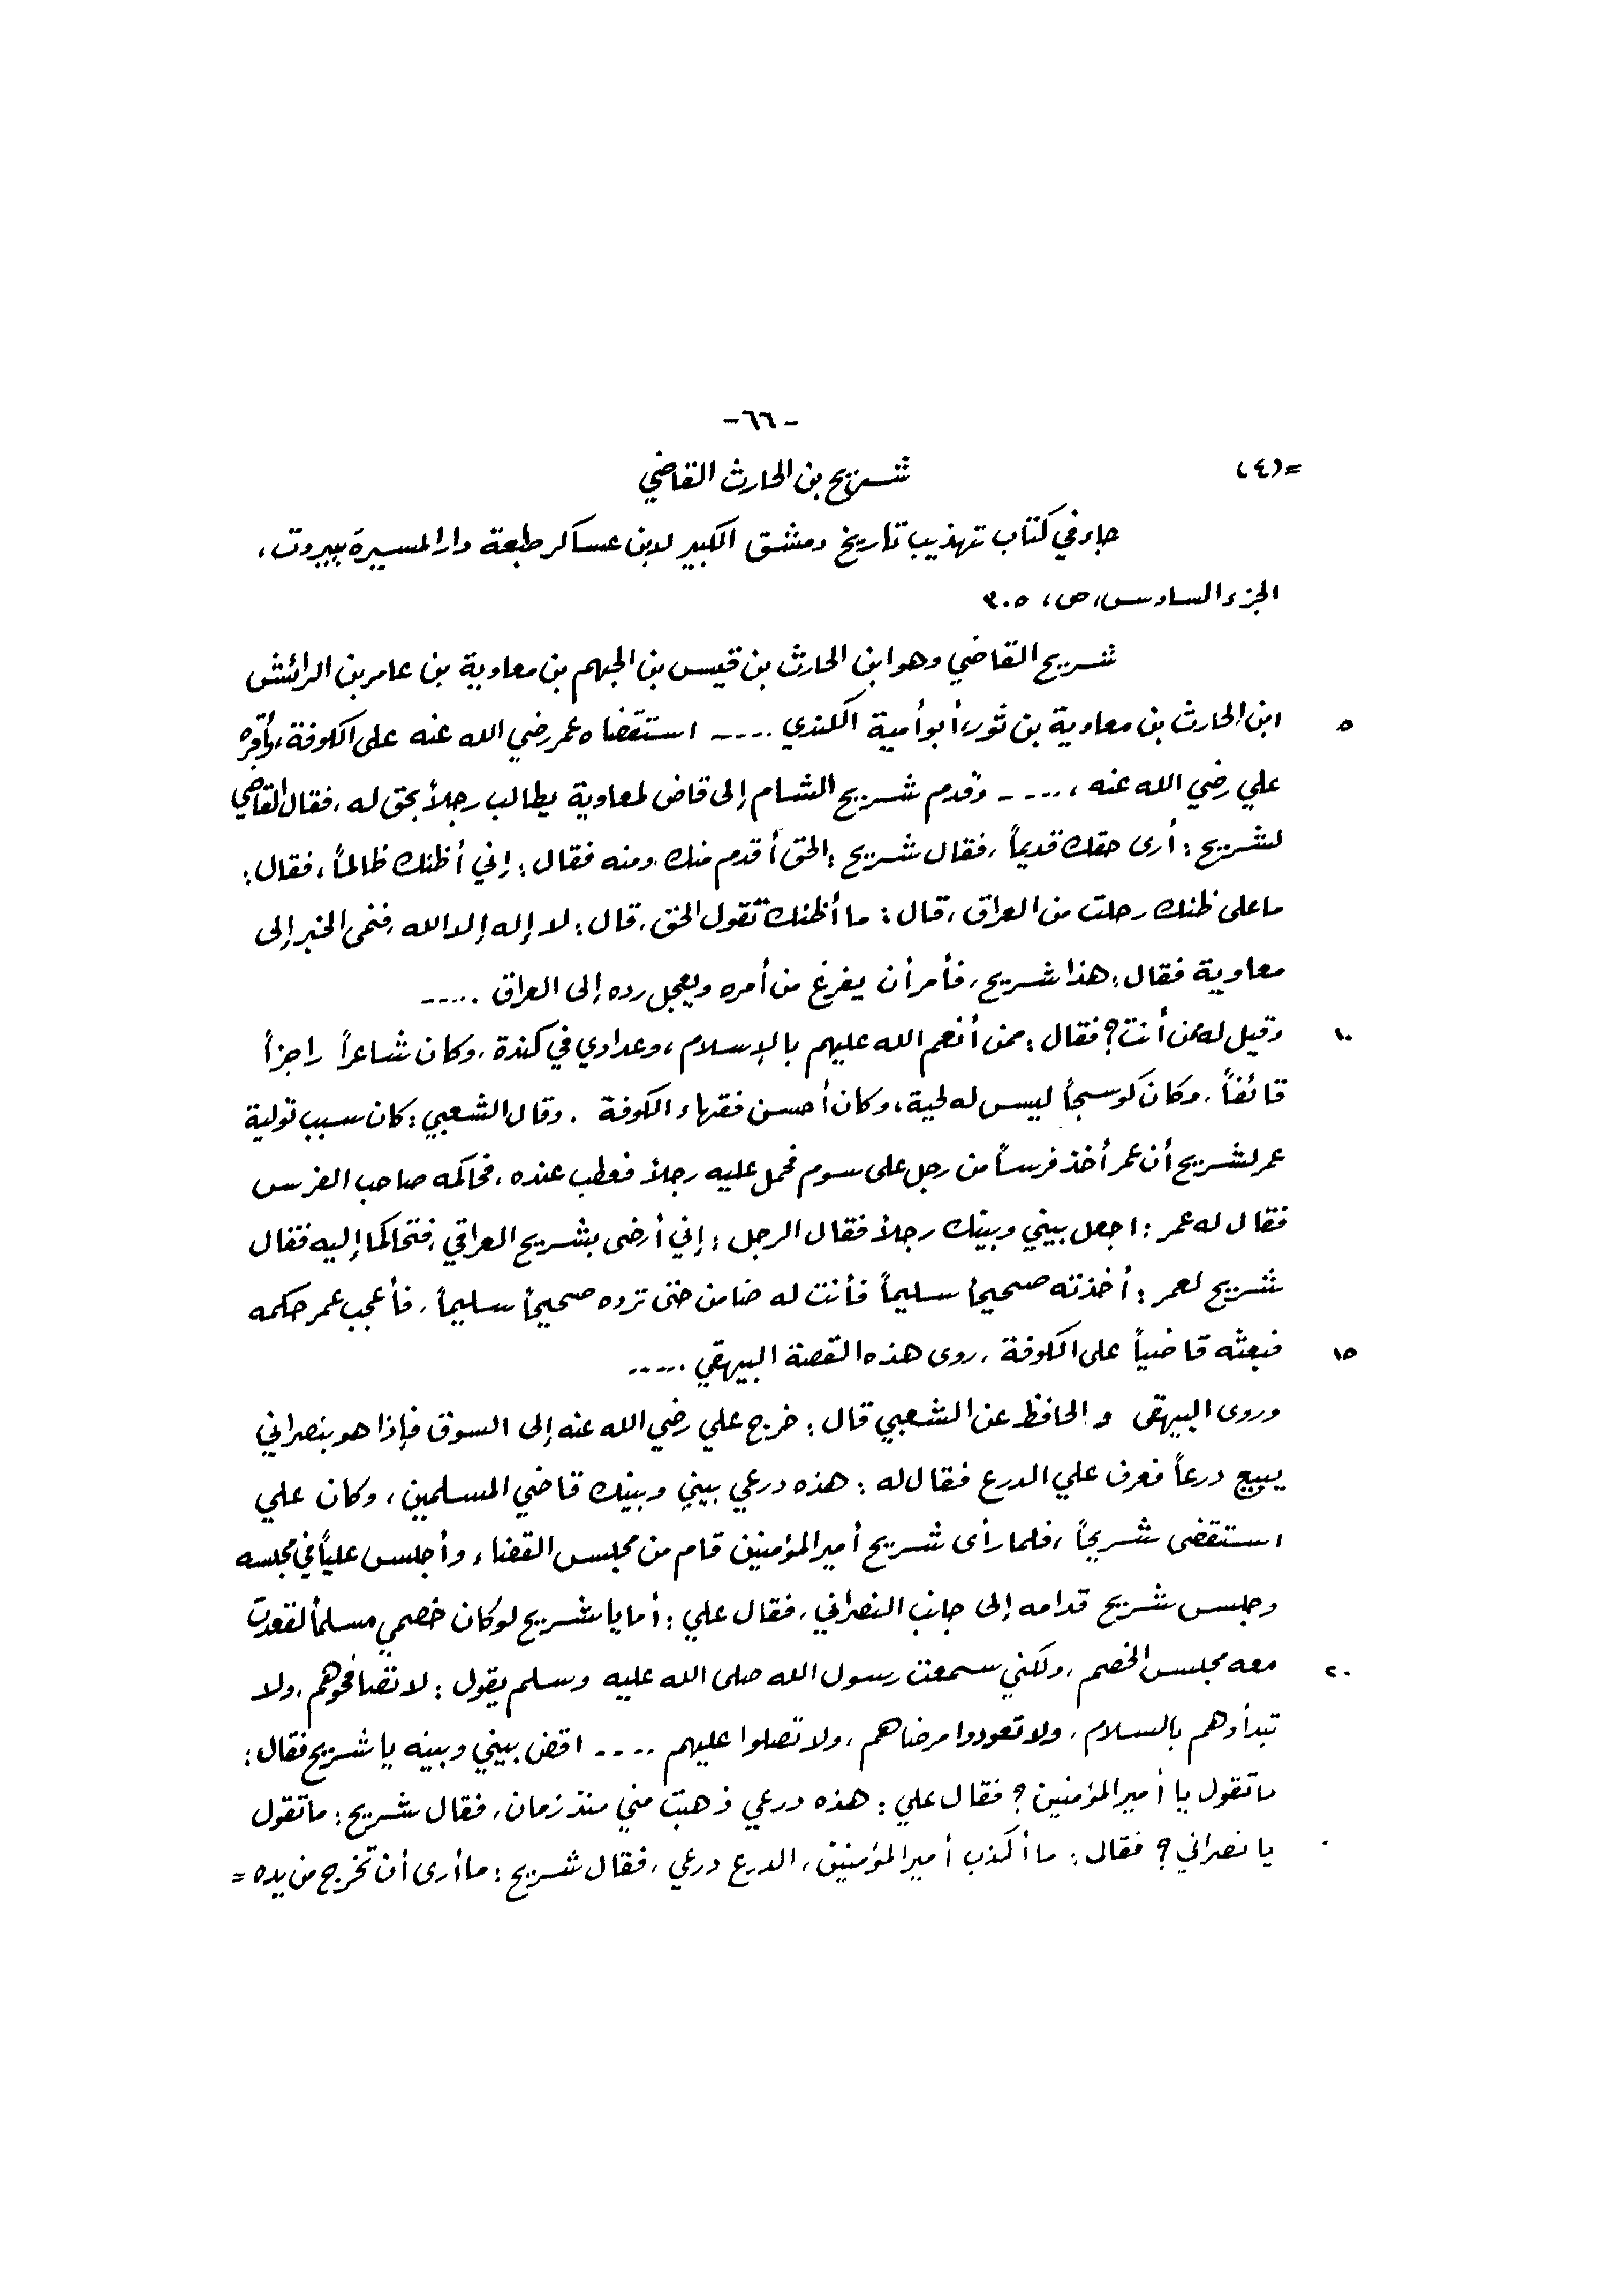 -٦٦-
=(٤)
شريح بن الحارث القاضي
جاء في كتاب تهذيب تاريخ دمشق الكبير لابن عساكر طبعة دار المسيرة ببيروت،
الجزء السادس، ص، ٣٠٥
شريح القاضي وهو ابن الحارث بن قيس بن الجهم بن معاوية بن عامر بن الرائش
٥ ابن الحارث بن معاوية بن ثور، أبو أمية الكندي .... استقضاه عمر رضي الله عنه على الكوفة، وأقره
علي رضي الله عنه ، .... وقدم شريح الشام إلى قاض لمعاوية يطالب رجلاً بحق له، فقال القاضي
لشريح: أرى حقك قديماً، فقال شريح: الحق أقدم منك ومنه فقال: إني أظنك ظالماً، فقال:
ما على ظنك رحلت من العراق، قال: ما أظنك تقول الحق، قال: لا إله إلا الله، فنمى الخبر إلى
معاوية فقال: هذا شريح، فأمر أن يفرغ من أمره ويعجل رده إلى العراق .....
١٠ وقيل له ممن أنت؟ فقال: ممن أنعم الله عليهم بالإسلام، وعدادي في كندة، وكان شاعراً راجزاً
قائفاً، وكان كوسجاً ليس له لحية، وكان أحسن فقهاء الكوفة . وقال الشعبي: كان سبب تولية
عمر لشريح أن عمر أخذ فرساً من رجل على سوم فحمل عليه رجلاً فعطب عنده، فحاكمه صاحب الفرس
فقال له عمر: اجعل بيني وبينك رجلاً فقال الرجل: إني أرضى بشريح العراقي، فتحاكما إليه فقال
شريح لعمر: أخذته صحيحاً سليماً فأنت له ضامن حتى ترده صحيحاً سليماً، فأعجب عمر حكمه
١٥ فبعثه قاضياً على الكوفة، روى هذه القصة البيهقي .....
وروى البيهقي والحافظ عن الشعبي قال: خرج علي رضي الله عنه إلى السوق فإذا هو بنصراني
يبيع درعاً فعرف علي الدرع فقال له: هذه درعي بيني وبينك قاضي المسلمين، وكان علي
استقضى شريحاً، فلما رأى شريح أمير المؤمنين قام من مجلس القضاء وأجلس علياً في مجلسه
وجلس شريح قدامه إلى جانب النصراني، فقال علي: أما يا شريح لو كان خصمي مسلماً لقعدت
٢٠ معه مجلس الخصم، ولكني سمعت رسول الله صلى الله عليه وسلم يقول: لا تصافحوهم، ولا
تبدأوهم بالسلام، ولا تعودوا مرضاهم، ولا تصلوا عليهم .... اقض بيني وبينه يا شريح فقال:
ما تقول يا أمير المؤمنين؟ فقال علي: هذه درعي ذهبت مني منذ زمان، فقال شريح: ما تقول
يا نصراني؟ فقال: ما أكذب أمير المؤمنين، الدرع درعي، فقال شريح: ما أرى أن تخرج من يده =